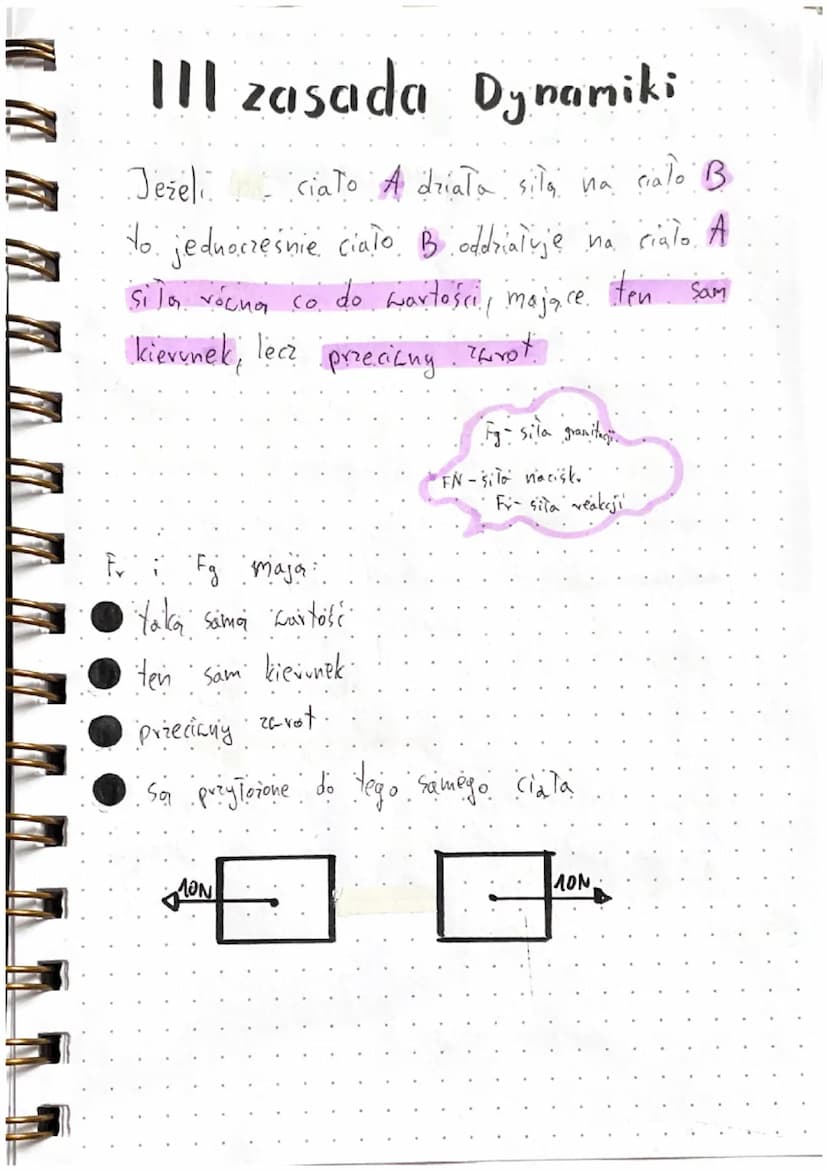 III zasada Dynamiki
Jeżeli ciało A działa siłą na ciało B
to jednocześnie ciało B oddziałuje na ciało A
siłą równą co do wartości, mające ten sam
kierunek, lecz przeciwny zwrot.
Fg - siła grawitacji
FN - siła nacisku
Fr - siła reakcji
Fr i Fg mają:
taką samą wartość
ten sam kierunek
przeciwny zwrot
są przyłożone do tego samego ciała
10N 10N